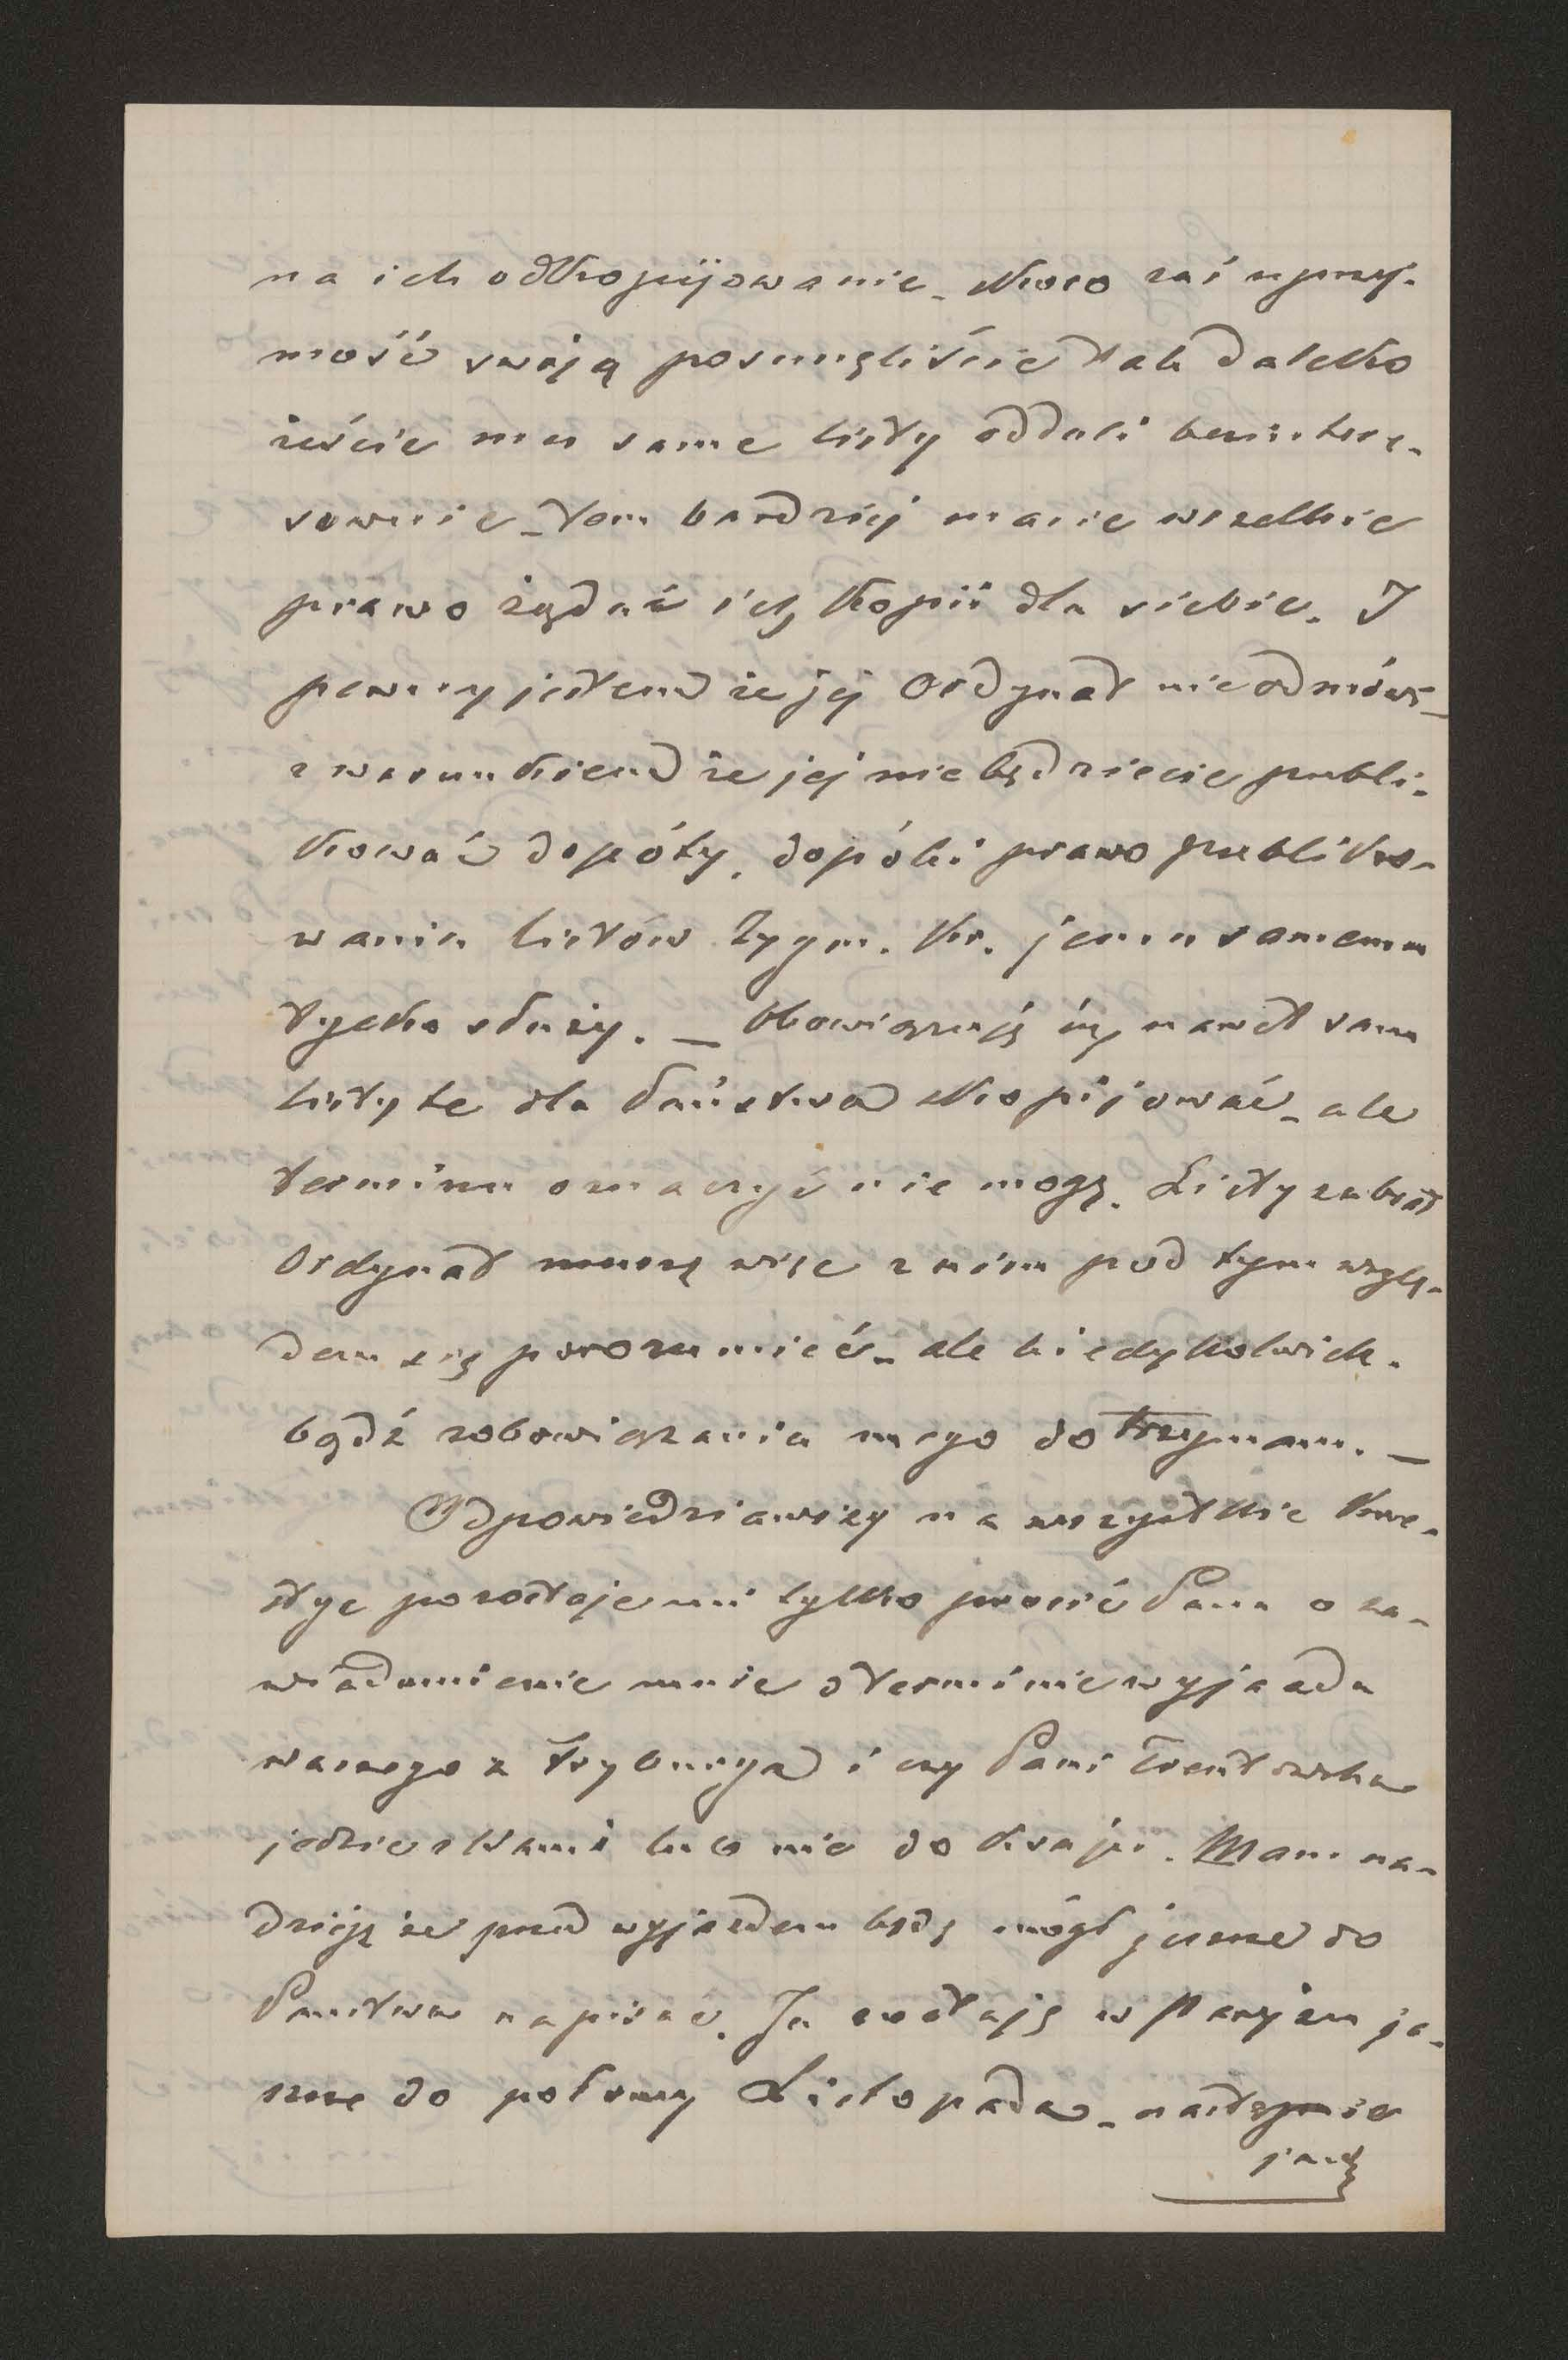 na ich odkopijowanie. Skoro zaś uprzej-
mość swoją posunęliście tak daleko
żeście mu same listy oddali bezintere-
sownie – tem bardziej macie wszelkie
prawo żądać ich kopii dla siebie. I
pewny jestem że jej Ordynat nie odmówi –
z warunkiem że jej nie będziecie publi-
kować dopóty, dopóki prawo publiko-
wania listów Zygm. Kr. jemu samemu
tylko służy. – Obowiązuję się nawet sam
listy te dla Państwa skopijować – ale
terminu oznaczyć nie mogę. Listy zabrał
Ordynat muszę więc z nim pod tym wzglę-
dem się porozumieć – ale kiedykolwiek-
bądź zobowiązania mego dotrzymam. –
Odpowiedziawszy na wszystkie kwe-
stye pozostaje mi tylko prosić Pana o za-
wiadomienie mnie o terminie wyjazdu
waszego z Fryburga i czy Pani Trentowska
jedzie z Wami lub nie do kraju. Mam na-
dzieję że przed wyjazdem będę mógł jeszcze do
Państwa napisać. Ja zostaję w Paryżu je-
szcze do połowy Listopada – następnie
jadę